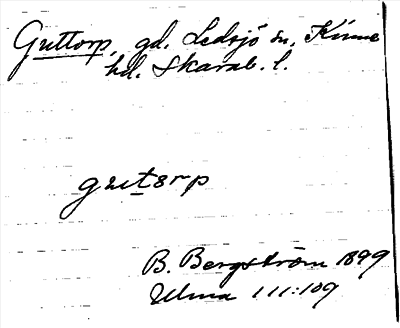 Guttorp, gd. Ledsjö sn, Kinne
hd. Skarab. l.
gutorp
B. Bergström 1899
Ulma 111:109